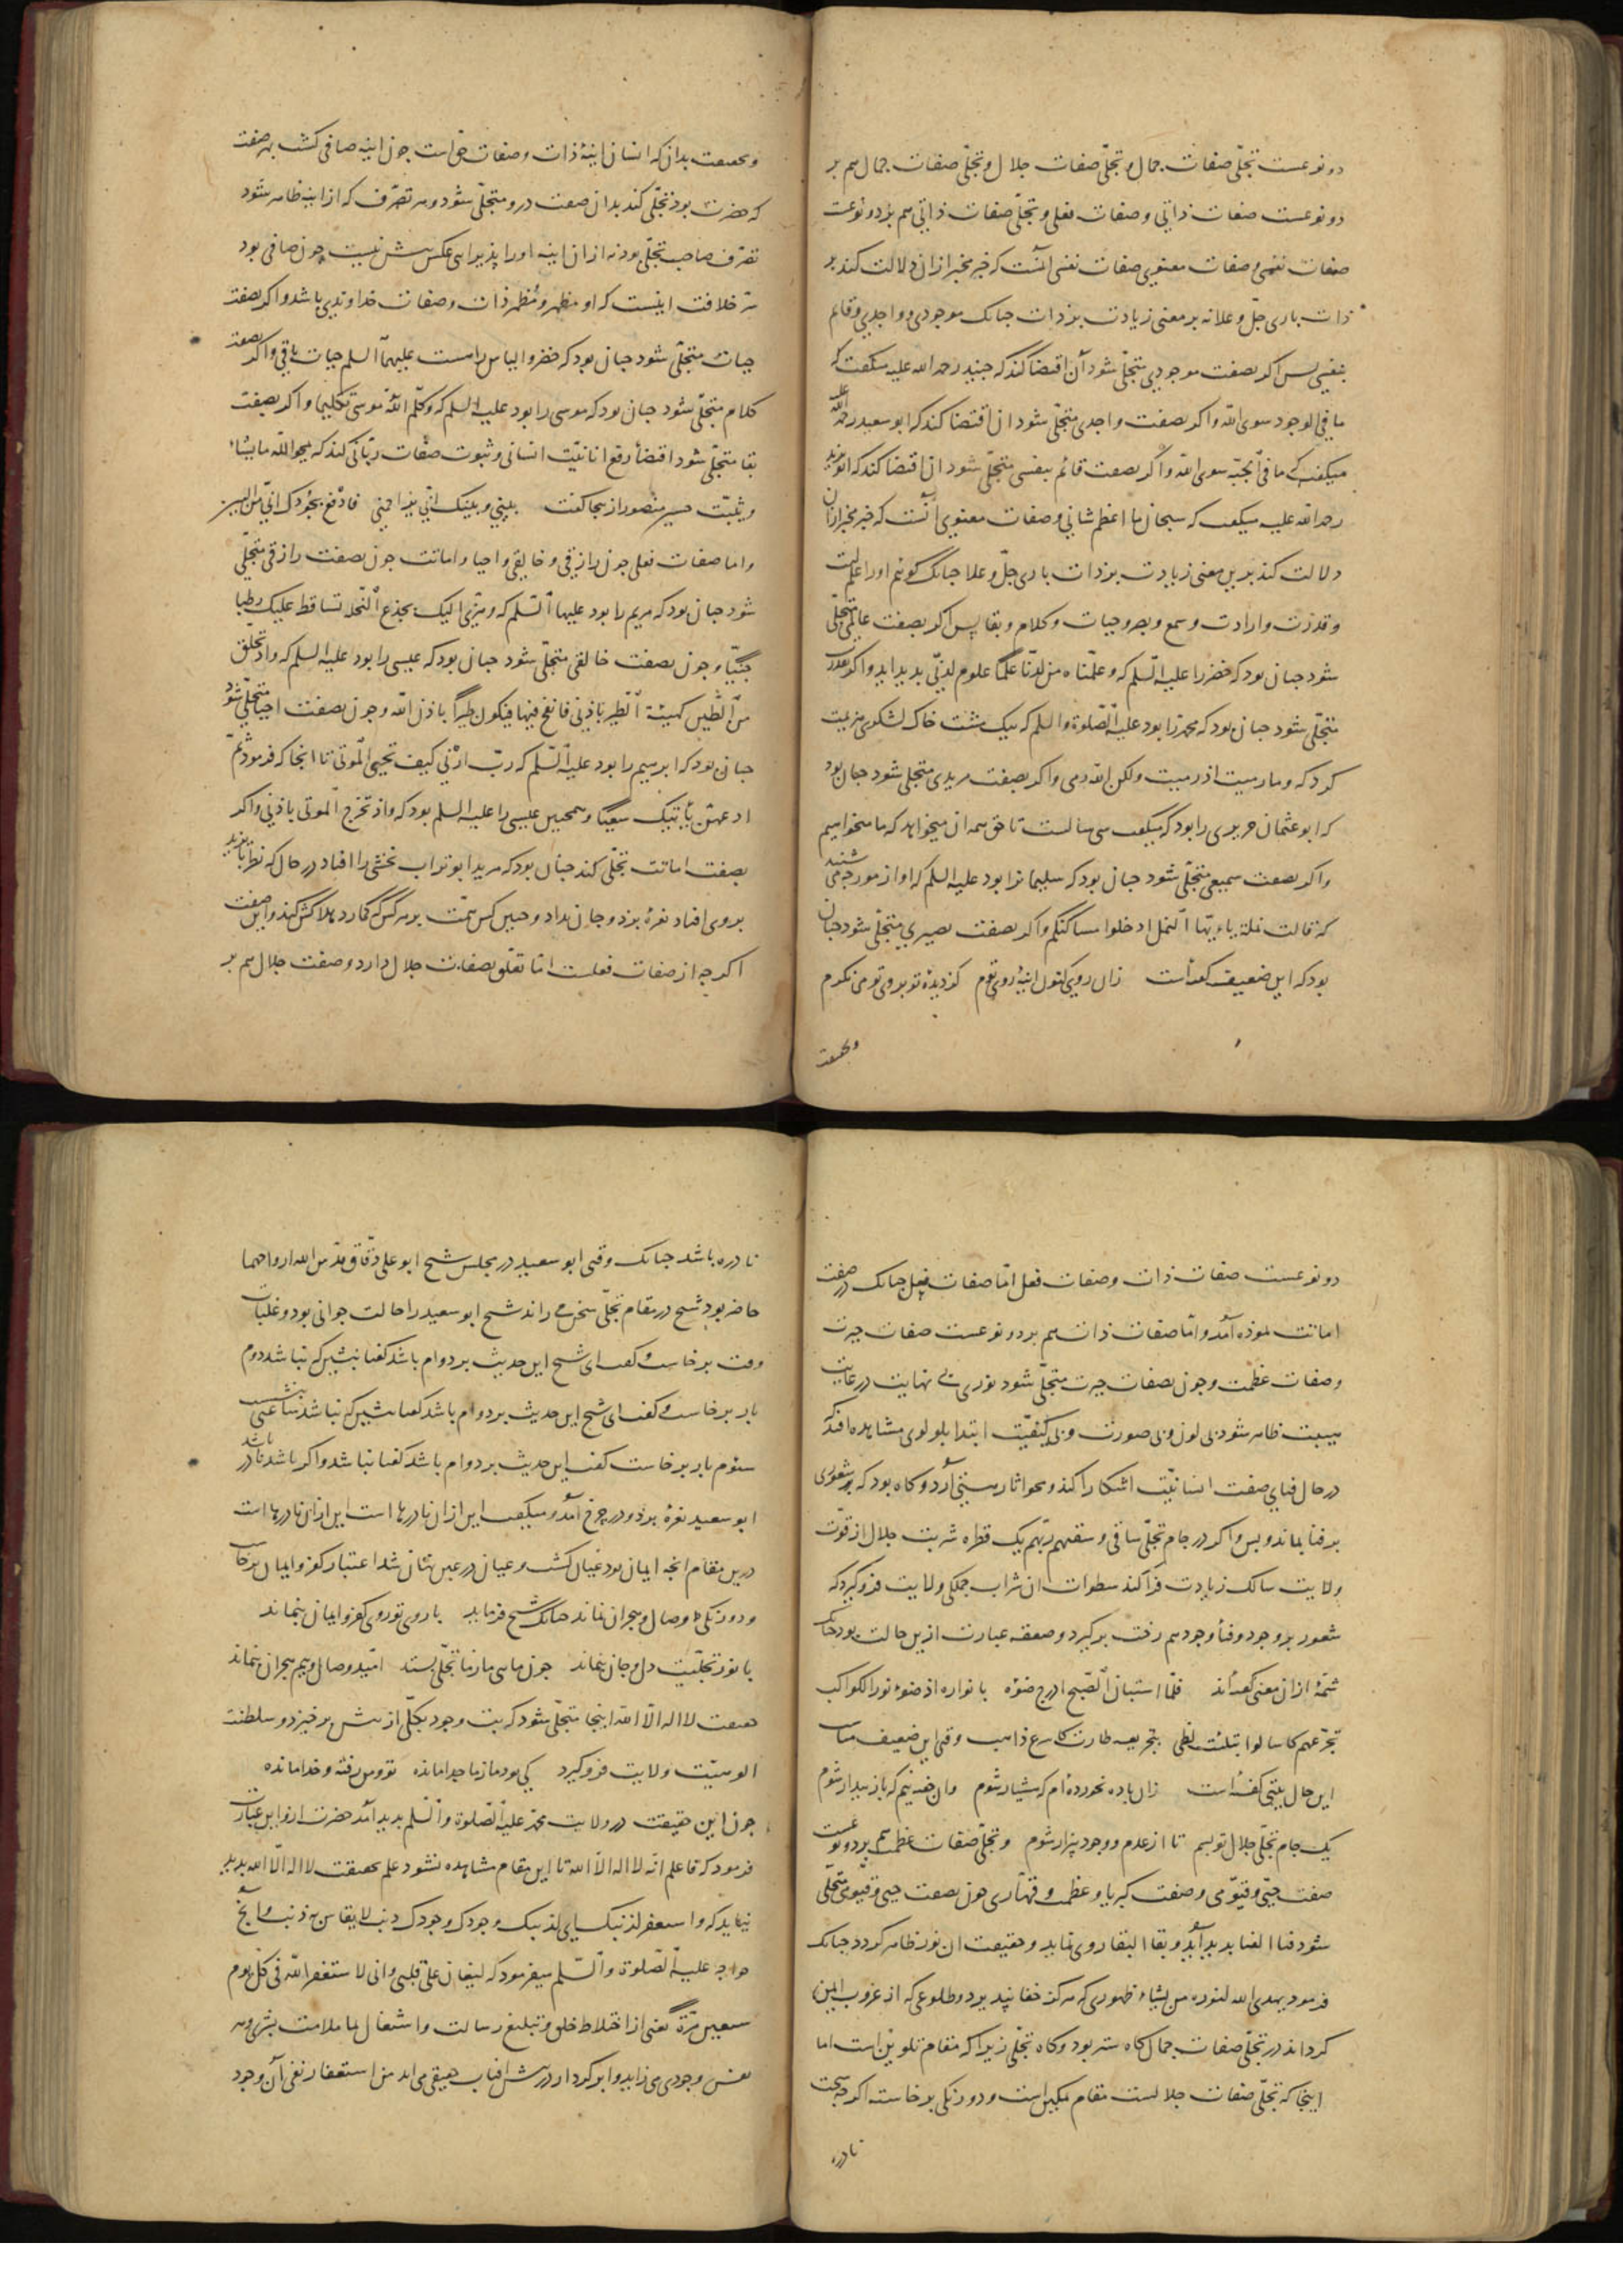 دو نوعست تجلّی صفات جمال و تجلّی صفات جلال و تجلّی صفات جمال هم بر
دو نوعست صفات ذاتی و صفات فعلی و تجلّی صفات ذاتی هم بر دو نوعست
صفات نفسی و صفات معنوی صفات نفسی آنست که خبر مخبر از ان دلالت کند بر
ذات باری جلّ و علا نه بر معنی زیادت بر ذات جنانک موجودی و واجدی و قائم
بنفسی بس اکر بصفت موجودی متجلّی شود آن اقتضا کند که جنید رحمه الله علیه میکفت که
ما فی الوجود سوی الله و اکر بصفت واجدی متجلّی شود ان اقتضا کند که ابو سعید رحمة الله علیه
میکفت که ما فی الجبّة سوی الله و اکر بصفت قائم بنفسی متجلّی شود ان اقتضا کند که ابو یزید
رحمه الله علیه میکفت که سبحانی ما اعظم شانی و صفات معنوی آنست که خبر مخبر از ان
دلالت کند بر این معنی زیادت بر ذات باری جلّ و علا جنانک کوئیم او را علمست
و قدرت و ارادت و سمع و بصر و حیات و کلام و بقا پس اکر بصفت عالمی متجلّی
شود جنان بود که خضر را علیه السّلم که و علّمناه من لدنّا علمًا علوم لدنّی بدید اید و اکر بقدرت
متجلّی شود جنان بود که محمد را بود علیه الصّلوة و السلم که بیک مشت خاک لشکری هزیمت
کرد که و ما رمیت اذ رمیت و لکن الله رمی و اکر بصفت مریدی متجلی شود جنان بود
که ابو عثمان حریری را بود که میکفت سی سالست تا حق همه ان میخواهد که ما میخواهیم
و اکر بصفت سمیعی متجلّی شود جنان بود که سلیمانرا بود علیه السلم که اواز مورجه می شنید
که قالت نملة یا ایّها النمل ادخلوا مساکنکم و اکر بصفت بصیری متجلّی شود جنان
بود که این ضعیف کفتاست زان روی کنون آینهٔ روی توم کز دیدهٔ تو بروی تو می نکرم
و بحقیقت
و بحقیقت بدان که انسان اینهٔ ذات و صفات حق است جون اینه صافی کشت بهر صفت
که حضرت بود تجلّی کند بدان صفت درو متجلّی شود و هر تصرّف که از اینه ظاهر شود
تصرّف صاحب تجلّی بود نه از ان اینه او را پذیرایی عکس بیش نیست جون صافی بود
سرّ خلافت اینست که او مظهر و مُظهر ذات و صفات خداوندی باشد و اکر بصفت
حیات متجلّی شود جنان بود که خضر و الیاس راست علیهما السلم حیات باقی و اکر بصفت
کلام متجلّی شود جنان بود که موسی را بود علیه السلم که و کلّم الله موسی تکلیمًا و اکر بصفت
بقا متجلّی شود اقتضا رفع انانیّت انسانی و ثبوت صفات ربّانی کند که یمحو الله ما یشاء
و یثبت حسین منصور از ینجا کفت بینی و بینک انّی یزاحمنی فارفع بجودک انّی من البین
و اما صفات فعلی جون رازقی و خالقی و احیا و اماتت جون بصفت رازقی متجلّی
شود جنان بود که مریم را بود علیها السّلم که و هزّی الیک بجذع النخلة تساقط علیک رطبا
جنیّا و جون بصفت خالقی متجلّی شود جنان بود که عیسی را بود علیه السلم که و اذ تخلق
من الطّین کهیئة الطّیر باذنی فانفخ فیها فیکون طیرًا باذن الله و جون بصفت احیا متجلّی شود
جنان بود که ابرهیم را بود علیه السّلم که ربّ ارنی کیف تحیی الموتی تا اینجا که فرمود ثمّ
ادعهنّ یأتینک سعیًا و همجنین عیسی را علیه السلم بود که و اذ تخرج الموتی باذنی و اکر
بصفت اماتت تجلّی کند جنان بود که مرید ابو تراب نخشبی را افتاد در حال که نظر بایزید
بر وی افتاد نعرهٔ بزد و جان بداد و جنین کس همّت بر هر کس که کمارد هلاکش کند و این صفت
اکرجه از صفات فعلست امّا تعلّق بصفات جلال دارد و صفت جلال هم بر
دو نوعست صفات ذات و صفات فعل امّا صفات فعل جنانک در صفت
اماتت نموذه آمد و امّا صفات ذات هم بر دو نوعست صفات جبروت
و صفات عظمت و جون بصفات جبروت متجلّی شود نوری بی نهایت در غایت
هیبت ظاهر شود بی لون و بی صورت و بی کیفیّت ابتدا بلولوی مشاهده افتد که
در حال فنای صفت انسانیّت اشکارا کند و محو اثار هستی آرد و کاه بود که بر شعوری
بر فنا بماند و بس و اکر در جام تجلّی ساقی و سقیهم ربّهم یک قطره شربت جلال از قوّت
ولایت سالک زیادت فرا کند سطوات ان شراب جملکی ولایت فرو کیرد که
شعور بر وجود و فنأ وجود هم رخت برکیرد و صعقه عبارت ازین حالت بود جنانک
شمّهٔ از ان معنی کفته اند فلمّا استبان الصّبح ادرج ضوءه بانواره انوار ضوء نور الکواکب
تجرّعهم کاسا لو ابتلیت لظی بتجریعه طارت کاسرع ذاهب وقتی این ضعیف مناسب
این حال بیتی کفته است زان باده نخورده ام که هشیار شوم وان خفته نیم که باز بیدار شوم
یک جام تجلّی جلال تو بسم تا از عدم و وجود بیزار شوم و تجلّی صفات عظمت هم بر دو نوعست
صفت حیّی و قیّومی و صفت کبریا و عظمت و قهّاری جون بصفت حیی و قیّومی متجلّی
شود فناء الفنا بدید آید و بقاء البقا روی نماید و حقیقت ان نور ظاهر کردد جنانک
فرمود یهدی الله لنوره من یشاء ظهوری که هرکز خفا نپذیرد و طلوعی که از غروب ایمن
کرداند در تجلّی صفات جمال کاه ستر بود و کاه تجلّی زیرا که مقام تلوین است اما
اینجا که تجلّی صفات جلالست مقام تمکین است و دو رنکی برخاسته اکرجه سخت
نادره
نادره باشد جنانک وقتی ابو سعید در مجلس شیخ ابو علی دقّاق قدّس الله ارواحهما
حاضر بود شیخ در مقام تجلّی سخن می راند شیخ ابو سعید را حالت جوانی بود و غلبات
وقت بر خاست و کفت ای شیخ این حدیث بر دوام باشد کفتا بنشین که نباشد دوم
بار بر خاست و کفت ای شیخ این حدیث بر دوام باشد کفتا بنشین که نباشد بنشست ساعتی
سئوم بار بر خاست کفت این حدیث بر دوام باشد کفتا نباشد و اکر باشد نادر باشد
ابو سعید نعرهٔ بزد و در چرخ آمد و میکفت این از ان نادرها است این از ان نادرها است
درین مقام انجه ایمان بود عیان کشت و عیان در عین نهان شد اعتبار کفر و ایمان برخاست
و دو رنکی وصال و هجران نماند جنانک شیخ فرماید با روی تو روی کفر و ایمان بنماند
با نور تجلیت دل و جان بنماند جون مایی ما ز ما تجلّی بستد امّید وصال و بیم هجران بنماند
حقیقت لا اله الّا الله اینجا متجلّی شود که بت وجود بکلّی از پیش بر خیزد و سلطنت
الوهیّت ولایت فرو کیرد کی بود ما ز ما جدا مانده تو و من رفته و خدا مانده
جون این حقیقت در ولایت محمد علیه الصّلوة و السّلم بدید آمد حضرت ازو این عبارت
فرمود که فاعلم انّه لا اله الّا الله تا این مقام مشاهده نشود علم بحقیقت لا اله الّا الله بدید
نیاید که و استغفر لذنبک ای لذنبک وجودک وجودک ذنب لا یقاس به ذنب و آنج
خواجه علیه الصّلوة و السّلم میفرمود که لیغان علی قلبی و انی لاستغفر الله فی کلّ یوم
سبعین مرّة یعنی از اختلاط خلق و تبلیغ رسالت و اشتغال بما ملامت بشری هر
نفس وجودی می زاید و ابر کردار در پیش افتاب حقیقی می اید من استغفار نفی آن وجود